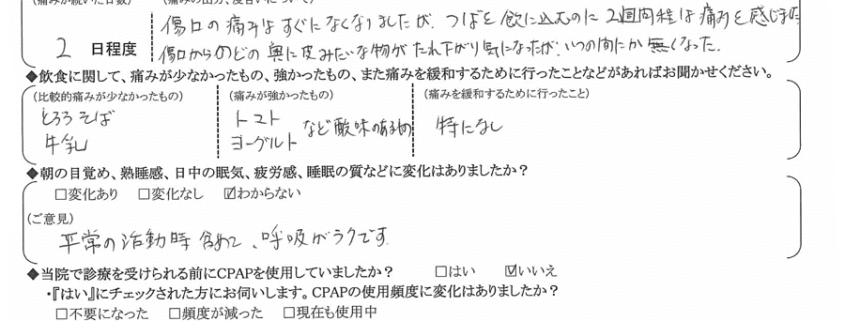 (痛みが続いた日数) (痛みの出方、度合いについて)
傷口の痛みはすぐになくなりましたが、つばを飲に込むのに2週間程は痛みを感じました
2 日程度 傷口からのどの奥に皮みたいな物がたれ下がり気になったが、いつの間にか無くなった.
◆飲食に関して、痛みが少なかったもの、強かったもの、また痛みを緩和するために行ったことなどがあればお聞かせください。
(比較的痛みが少なかったもの) (痛みが強かったもの) (痛みを緩和するために行ったこと)
とろろそば トマト など酸味のあるもの 特になし
牛乳 ヨーグルト
◆朝の目覚め、熟睡感、日中の眠気、疲労感、睡眠の質などに変化はありましたか?
□変化あり □変化なし ☑わからない
(ご意見)
平常の活動時含めて、呼吸がラクです.
◆当院で診療を受けられる前にCPAPを使用していましたか? □はい ☑いいえ
・『はい』にチェックされた方にお伺いします。CPAPの使用頻度に変化はありましたか?
□不要になった □頻度が減った □現在も使用中